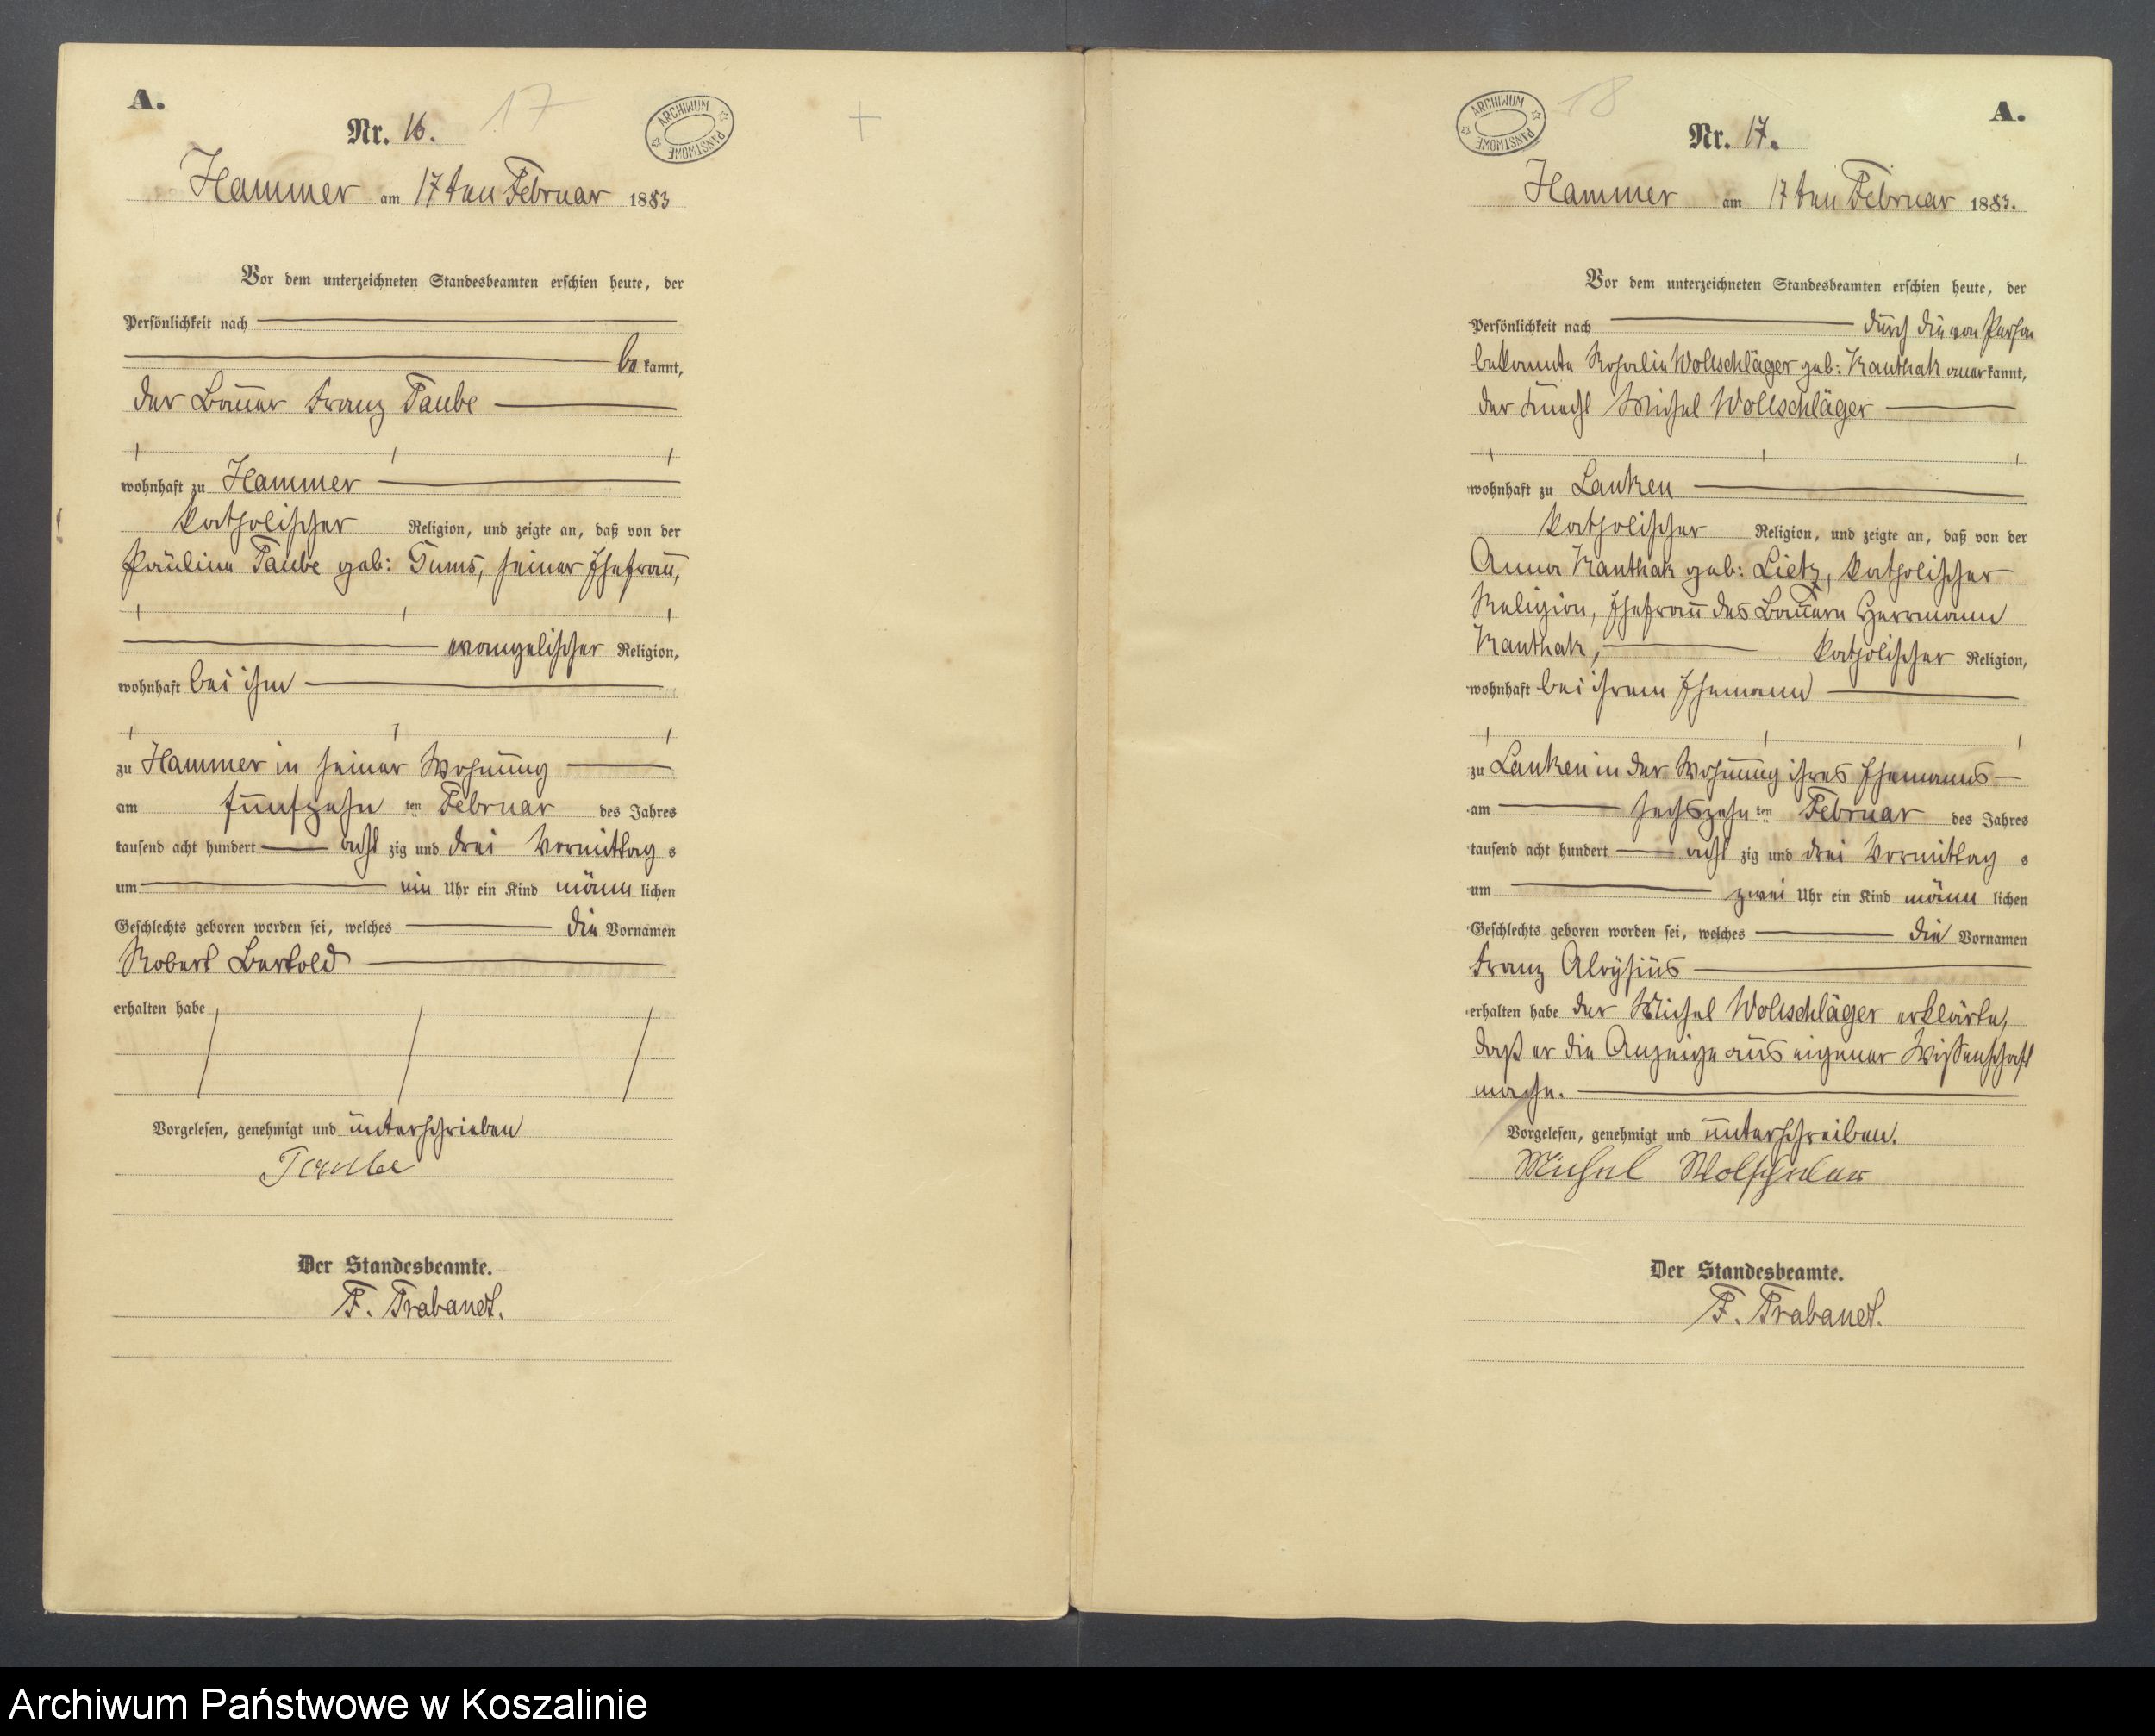 A.
17
Nr. 16.
ARCHIWUM PAŃSTWOWE
Hammer am 17ten Februar 1883
Vor dem unterzeichneten Standesbeamten erschien heute, der
Persönlichkeit nach
be kannt,
der Bauer Franz Taube
wohnhaft zu Hammer
katholischer Religion, und zeigte an, daß von der
Pauline Taube geb: Tums, seiner Ehefrau,
evangelischer Religion,
wohnhaft bei ihm
zu Hammer in seiner Wohnung
am fünfzehn ten Februar des Jahres
tausend acht hundert acht zig und drei Vormittag s
um ein Uhr ein Kind männ lichen
Geschlechts geboren worden sei, welches die Vornamen
Robert Bertold
erhalten habe
Vorgelesen, genehmigt und unterschrieben
Taube
Der Standesbeamte.
F. Trabandt.
ARCHIWUM PAŃSTWOWE
18
A.
Nr. 17.
Hammer am 17ten Februar 1883.
Vor dem unterzeichneten Standesbeamten erschien heute, der
Persönlichkeit nach durch die von Person
bekannte Rosalie Wollschläger geb: Kanthak aner kannt,
der Knecht Michel Wollschläger
wohnhaft zu Lanken
katholischer Religion, und zeigte an, daß von der
Anna Kanthak geb: Lietz, katholischer
Religion, Ehefrau des Bauern Herrmann
Kanthak, katholischer Religion,
wohnhaft bei ihrem Ehemann
zu Lanken in der Wohnung ihres Ehemanns
am sechszehn ten Februar des Jahres
tausend acht hundert acht zig und drei Vormittag s
um zwei Uhr ein Kind männ lichen
Geschlechts geboren worden sei, welches die Vornamen
Franz Aloysius
erhalten habe der Michel Wollschläger erklärte,
daß er die Anzeige aus eigener Wissenschaft
mache.
Vorgelesen, genehmigt und unterschreiben.
Michel
Der Standesbeamte.
F. Trabandt.
Archiwum Państwowe w Koszalinie